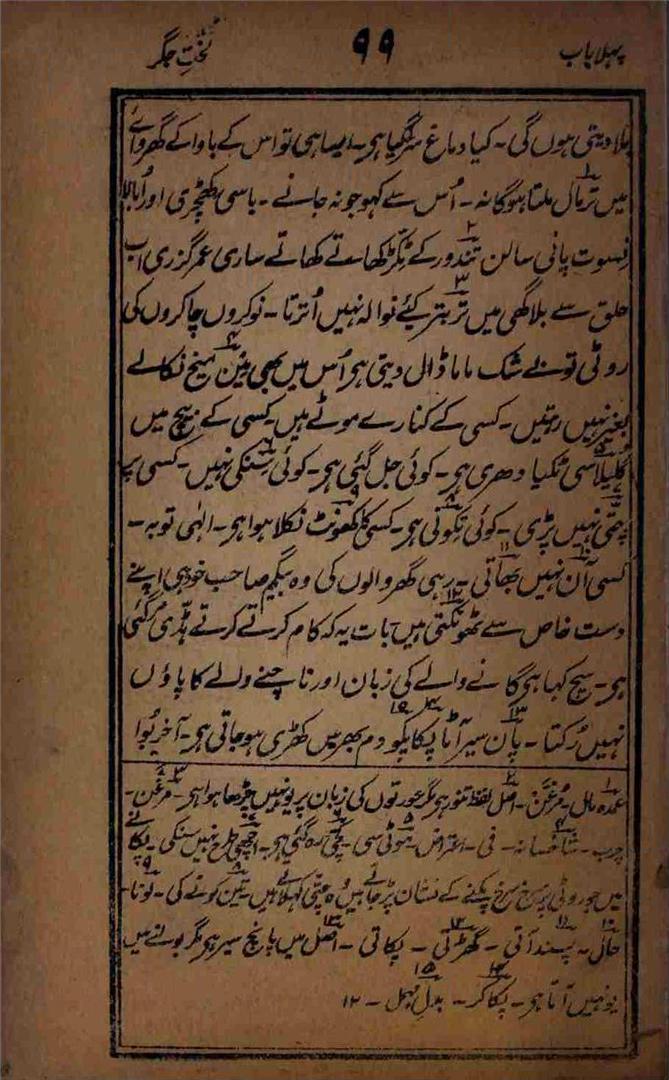 پہلا باب ۹۹ لختِ جگر
ملا دیتی ہوں گی۔ کیا دماغ سڑ گیا ہو۔ ایسا ہی تو اس کے باوا کے گھر وائے
میں تر مال ملتا ہوگا نہ۔ اُس سے کہو جو نہ جانے۔ باسی کھچڑی اور اُبالا
فسوت پانی سالن تندور کے ٹکڑ کھاتے کھاتے ساری عمر گزری اب
حلق سے بلا گھی میں تر بتر کیئے نوالہ نہیں اُترتا۔ نوکروں چاکروں کی
روٹی تو بے شک ماما ڈال دیتی ہو اُس میں بھی مین میخ نکالے
بغیر نہیں رہتیں۔ کسی کے کنارے موٹے ہیں۔ کسی کے بیچ میں
سی ٹکیا دھری ہو۔ کوئی جل گئی ہو۔ کوئی سنکی نہیں۔ کسی پر
چتی نہیں پڑی۔ کوئی تکونی ہو۔ کسی کا کھونٹ نکلا ہوا ہو۔ الٰہی توبہ۔
کسی آن نہیں بھاتی۔ رہی گھر والوں کی وہ بیگم صاحب خود ہی اپنے
دست خاص سے ٹھونکتی ہیں بات یہ کہ کام کرتے کرتے ہڈی مر گئی
ہو۔ سچ کہا ہو گانے والے کی زبان اور ناچنے والے کا پاؤں
نہیں رُکتا۔ پان سیر آٹا پکا پکو دم بھر میں کھڑی ہو جاتی ہو۔ آخر بُوا
۱ عمدہ مال۔ مُرغّن۔ ۲ اصل لفظ تنور ہو مگر عورتوں کی زبان پر یونہیں چڑھا ہوا ہو۔ ۳ مرغن۔
چرب۔ ۴ شاخسانہ۔ فی۔ اعتراض۔ ۵ موٹی سی۔ ۶ کچی رہ گئی ہو۔ اچھی طرح نہیں سنکی۔ ۷ پکانے
میں جو روٹی پر سرخ سرخ پکنے کے نشان پڑ جاتے ہیں وہ چتی کہلاتے ہیں۔ ۸ تین کونے کی۔ ۹
۱۰ حال۔ ۱۱ پسند آتی۔ ۱۲ گھڑتی۔ پکاتی۔ ۱۳ اصل میں پانچ سیر ہو مگر بولنے میں
یونہیں آتا ہو۔ ۱۴ پکا کر۔ ۱۵ بدل مہمل۔ ۱۲